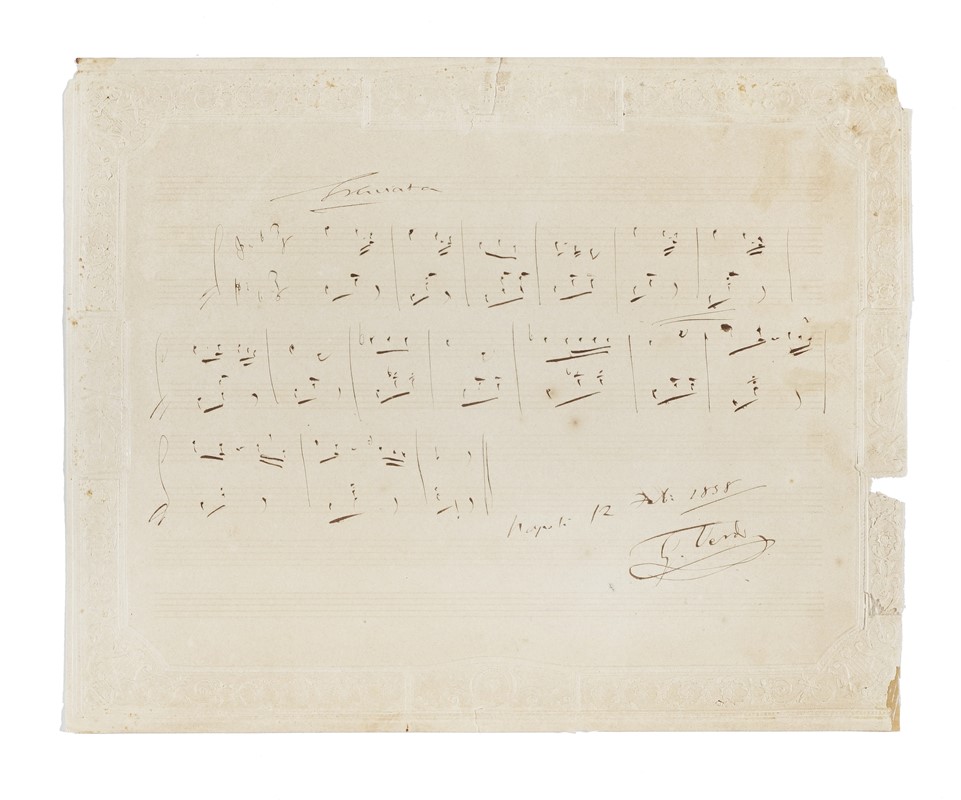 Traviata
Napoli 12 1858
G. Verdi